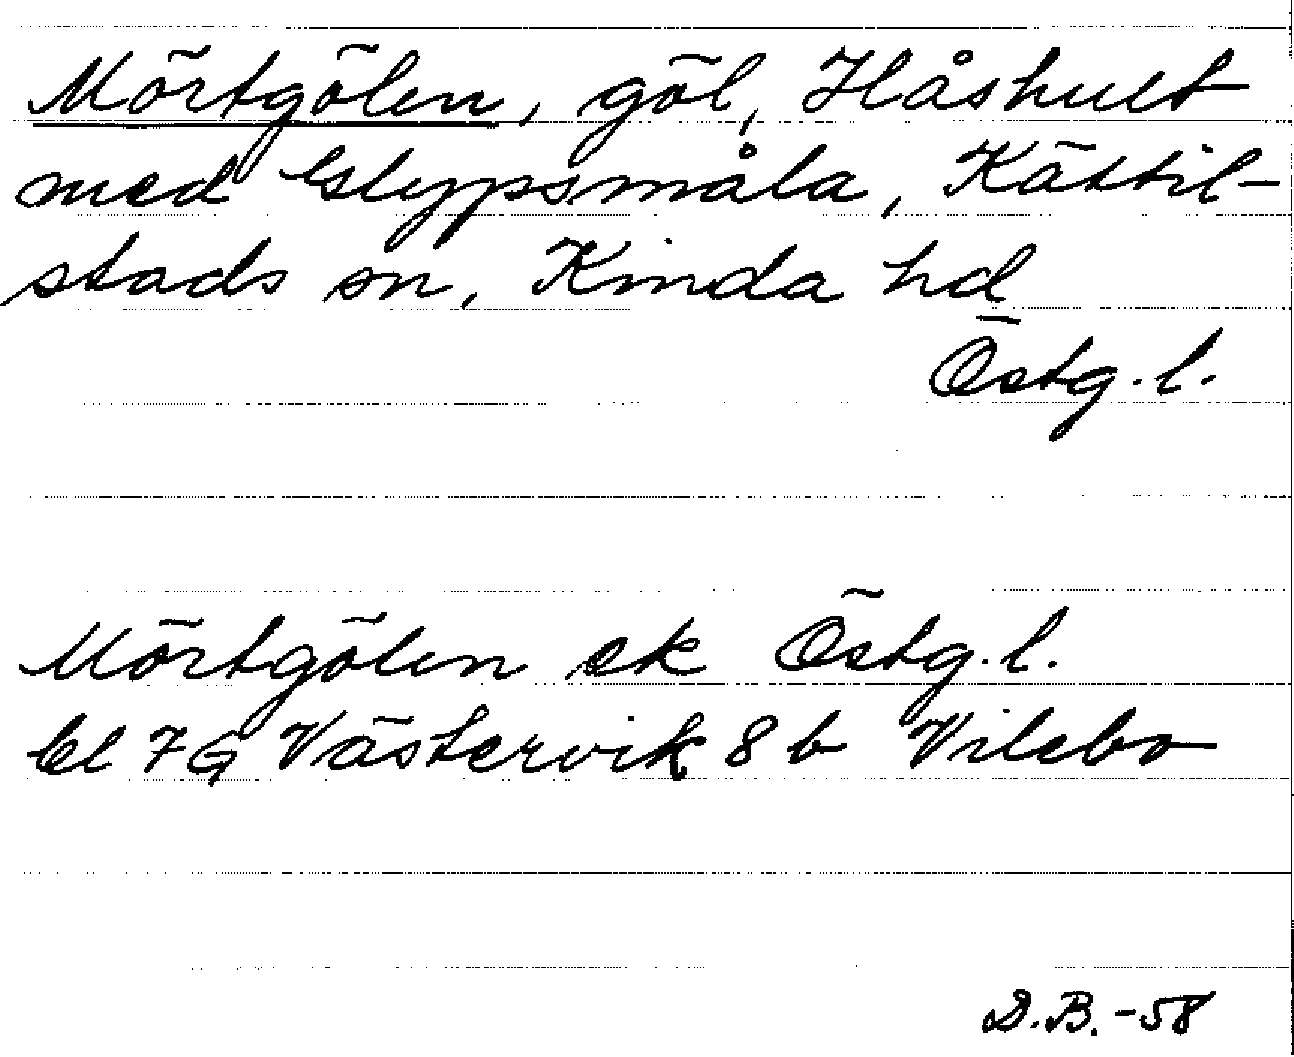 Mörtgölen, göl, Håshult
med Glypsmåla, Kättil-
stads sn, Kinda hd
Östg. l.
Mörtgölen ek Östg. l.
bl 7G Västervik 8 b Vilebo
D.B. -58